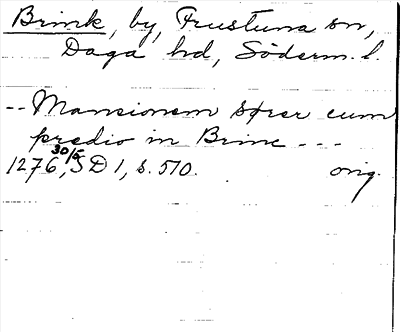 Brink, by, Frustuna sn,
Daga hd, Söderm. l.
-- Mansionem Strer cum
predio in Brinc ---
1276 30/5, SD 1, s. 510. orig.